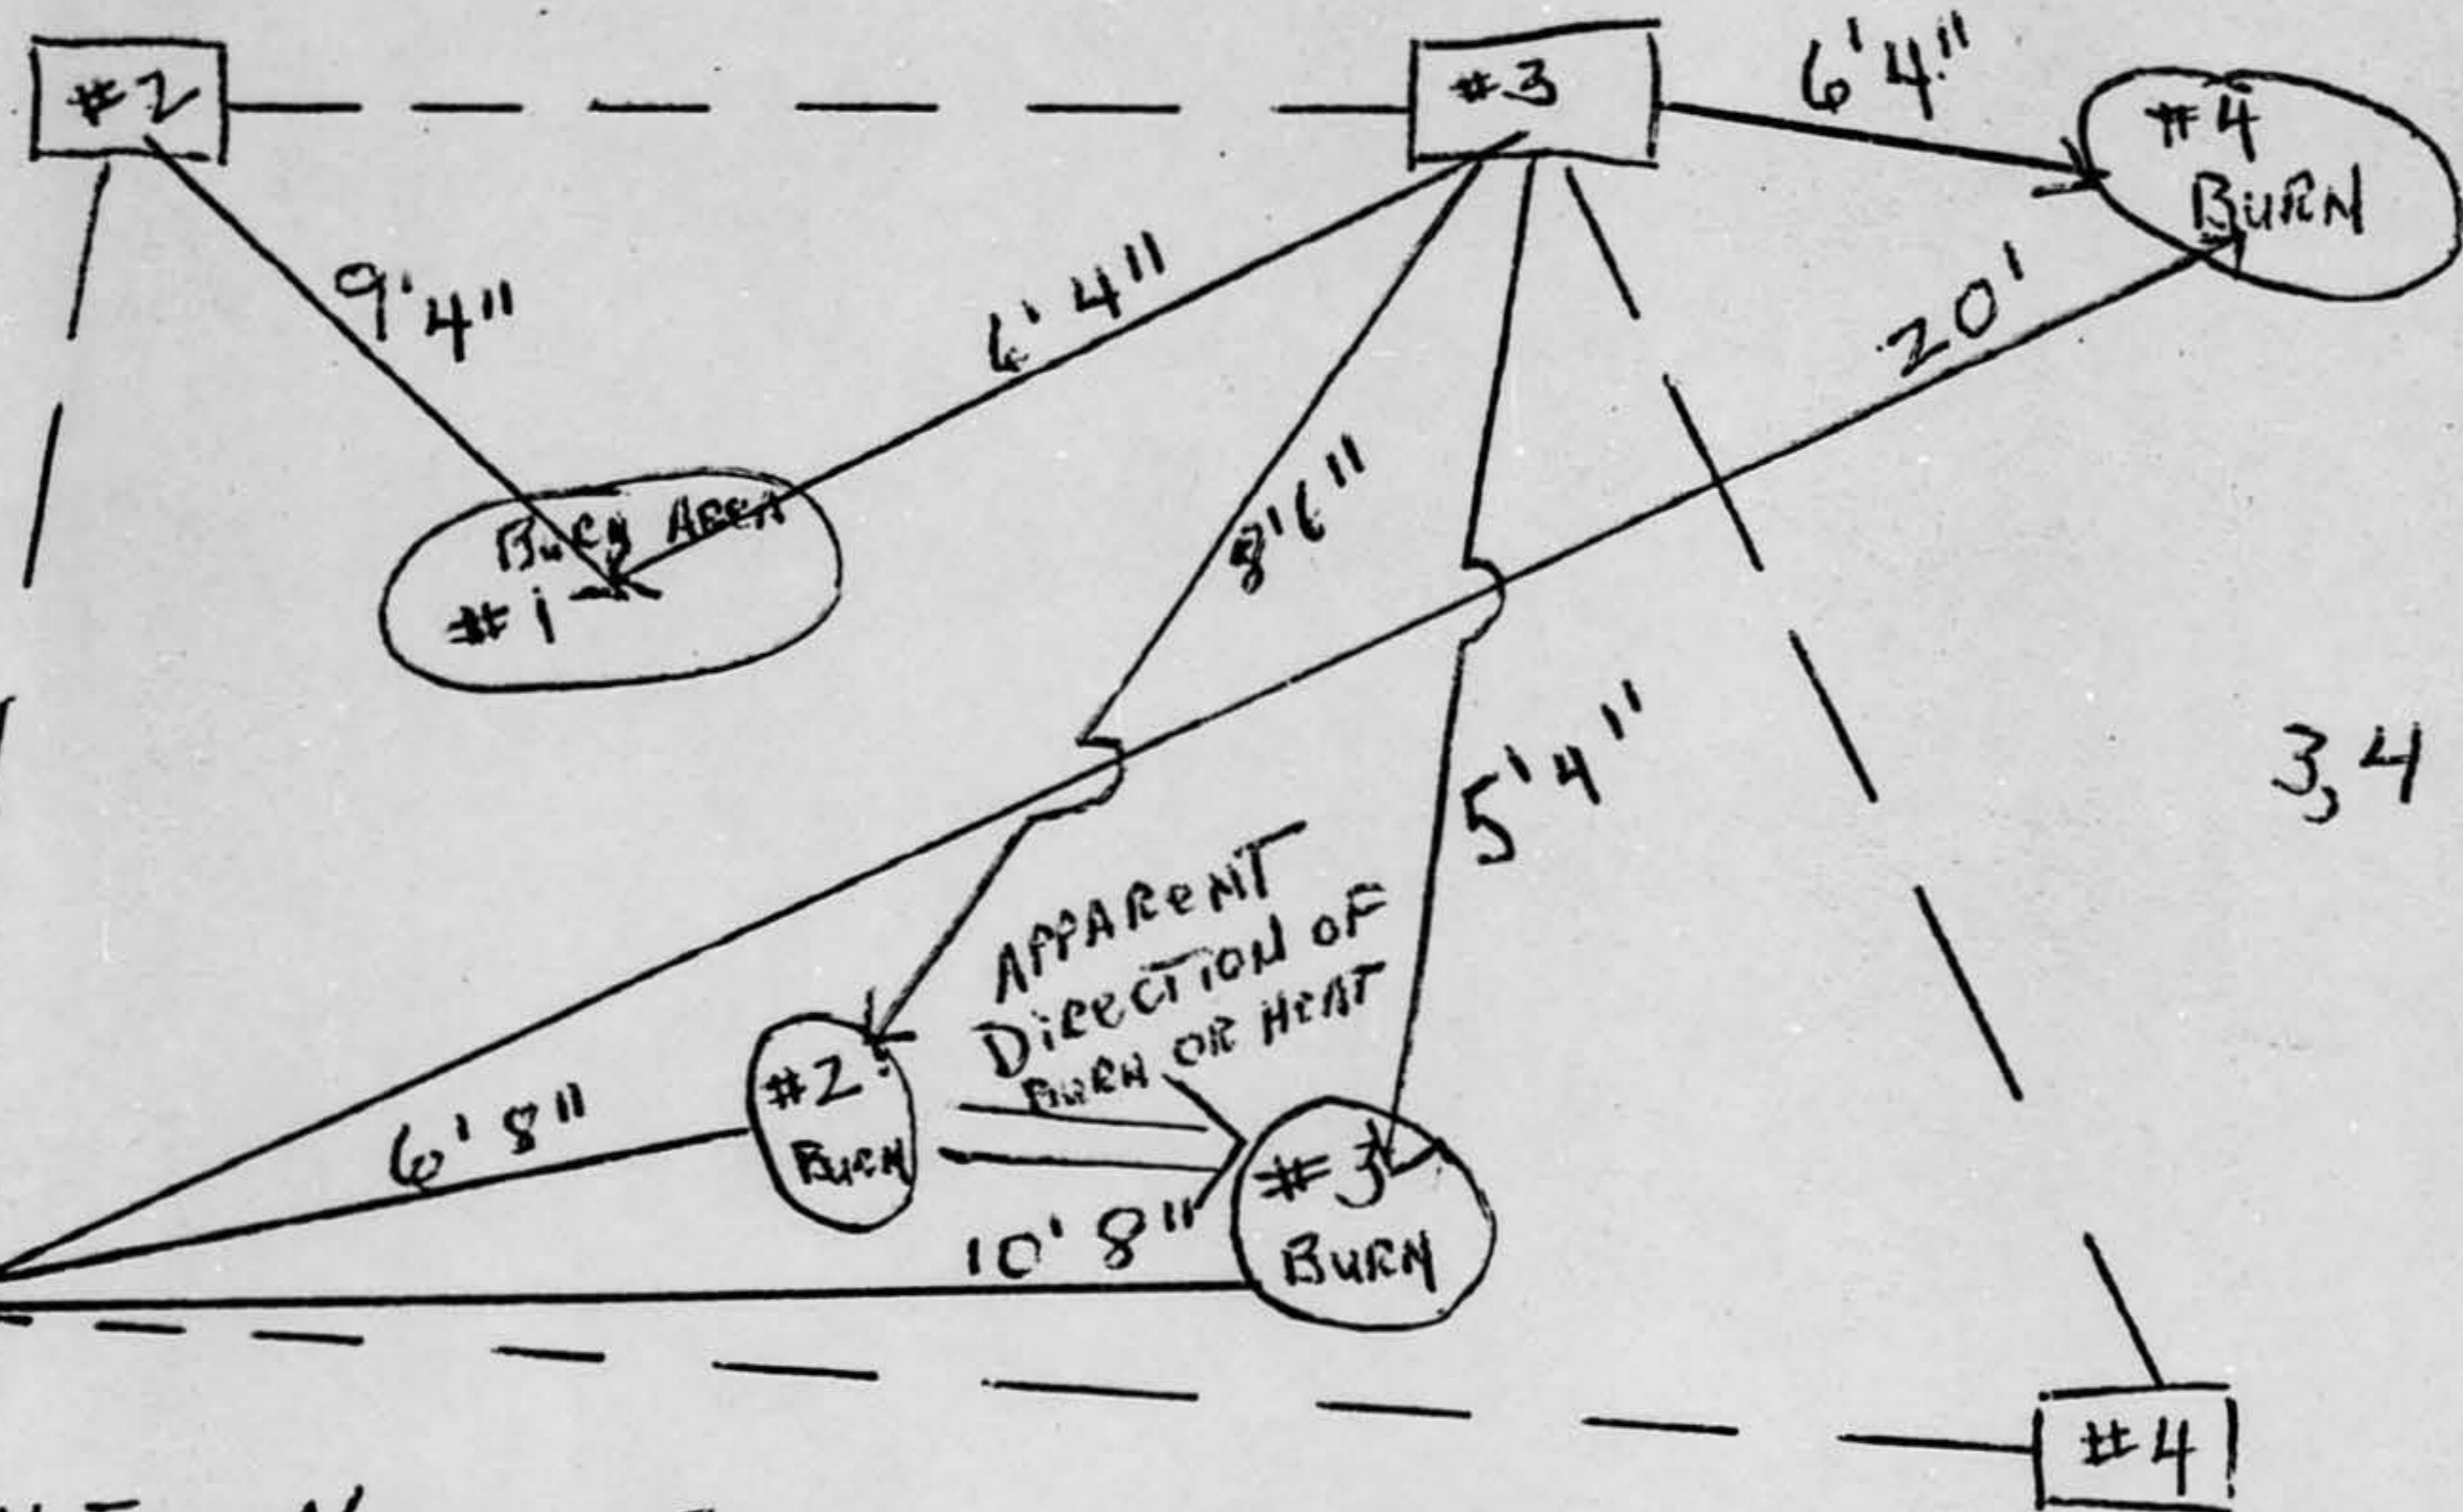 #2
#3
6'4"
#4
BURN
9'4"
6'4"
20'
BURN AREA
#1
8'6"
3,4
5'4"
APPARENT
DIRECTION OF
BURN OR HEAT
6'8"
#2
BURN
#3
BURN
10'8"
#4